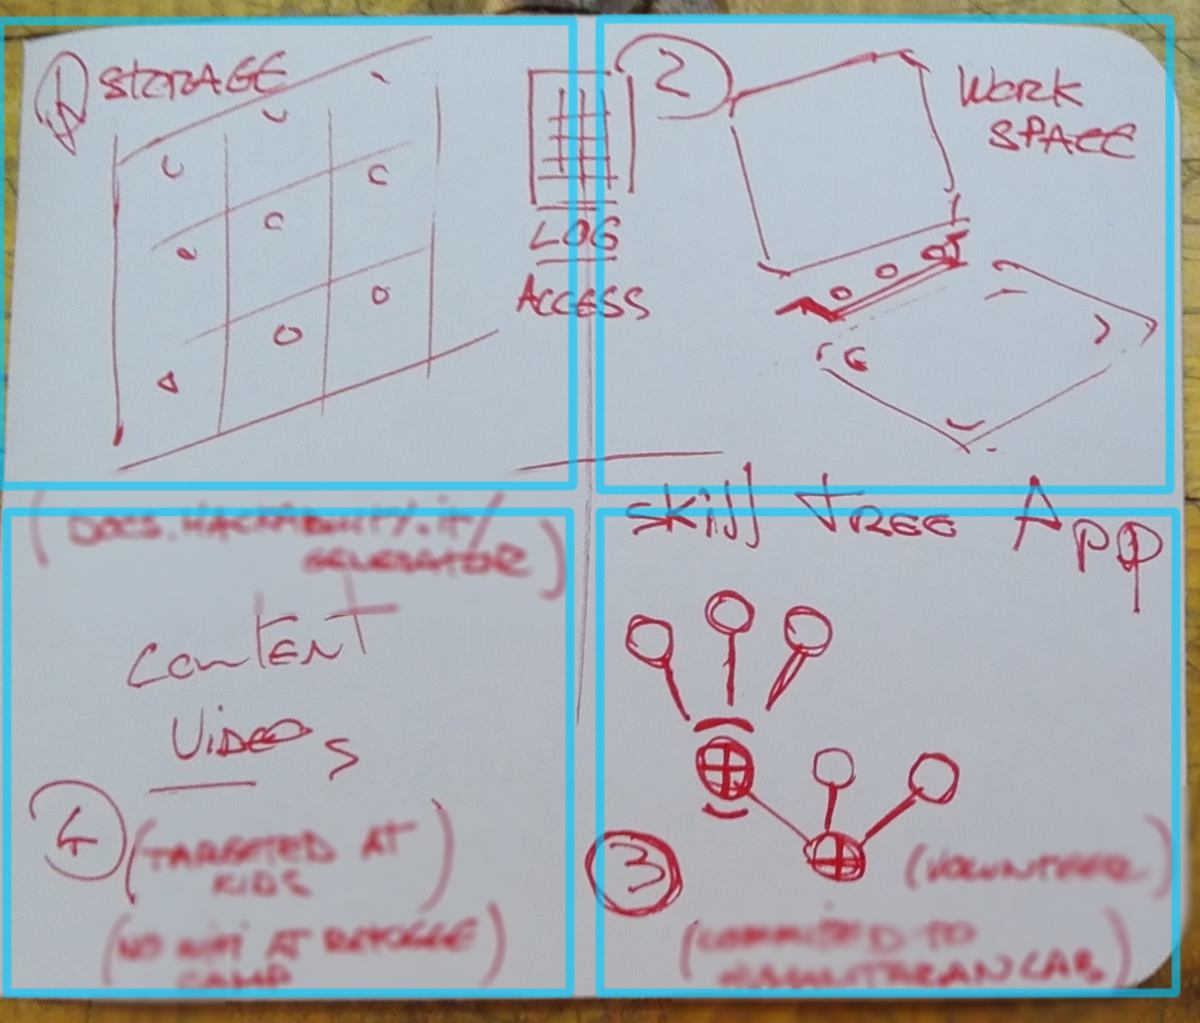 1 STORAGE
LOG
ACCESS
2
WORK
SPACE
SKill TREE App
3
(VOLUNTEER)
(COMMITTED TO
HUMANITARIAN LAB)
(DOCS.HACKABILITY.it/
GENERATOR)
CONTENT
VIDEOS
4
(TARGETED AT
KIDS)
(NO WIFI AT REFUGEE
CAMP)